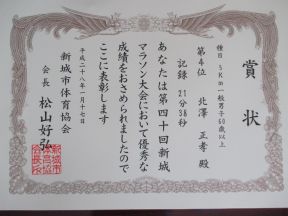 賞状
種目 5Km一般男子60歳以上
第4位 北澤 正孝 殿
記録 21分38秒
あなたは第四十回新城
マラソン大会において優秀な
成績をおさめられましたので
ここに表彰します
平成二十八年一月十七日
新城市体育協会
会長 松山好弘
新城市
体育協
会長印